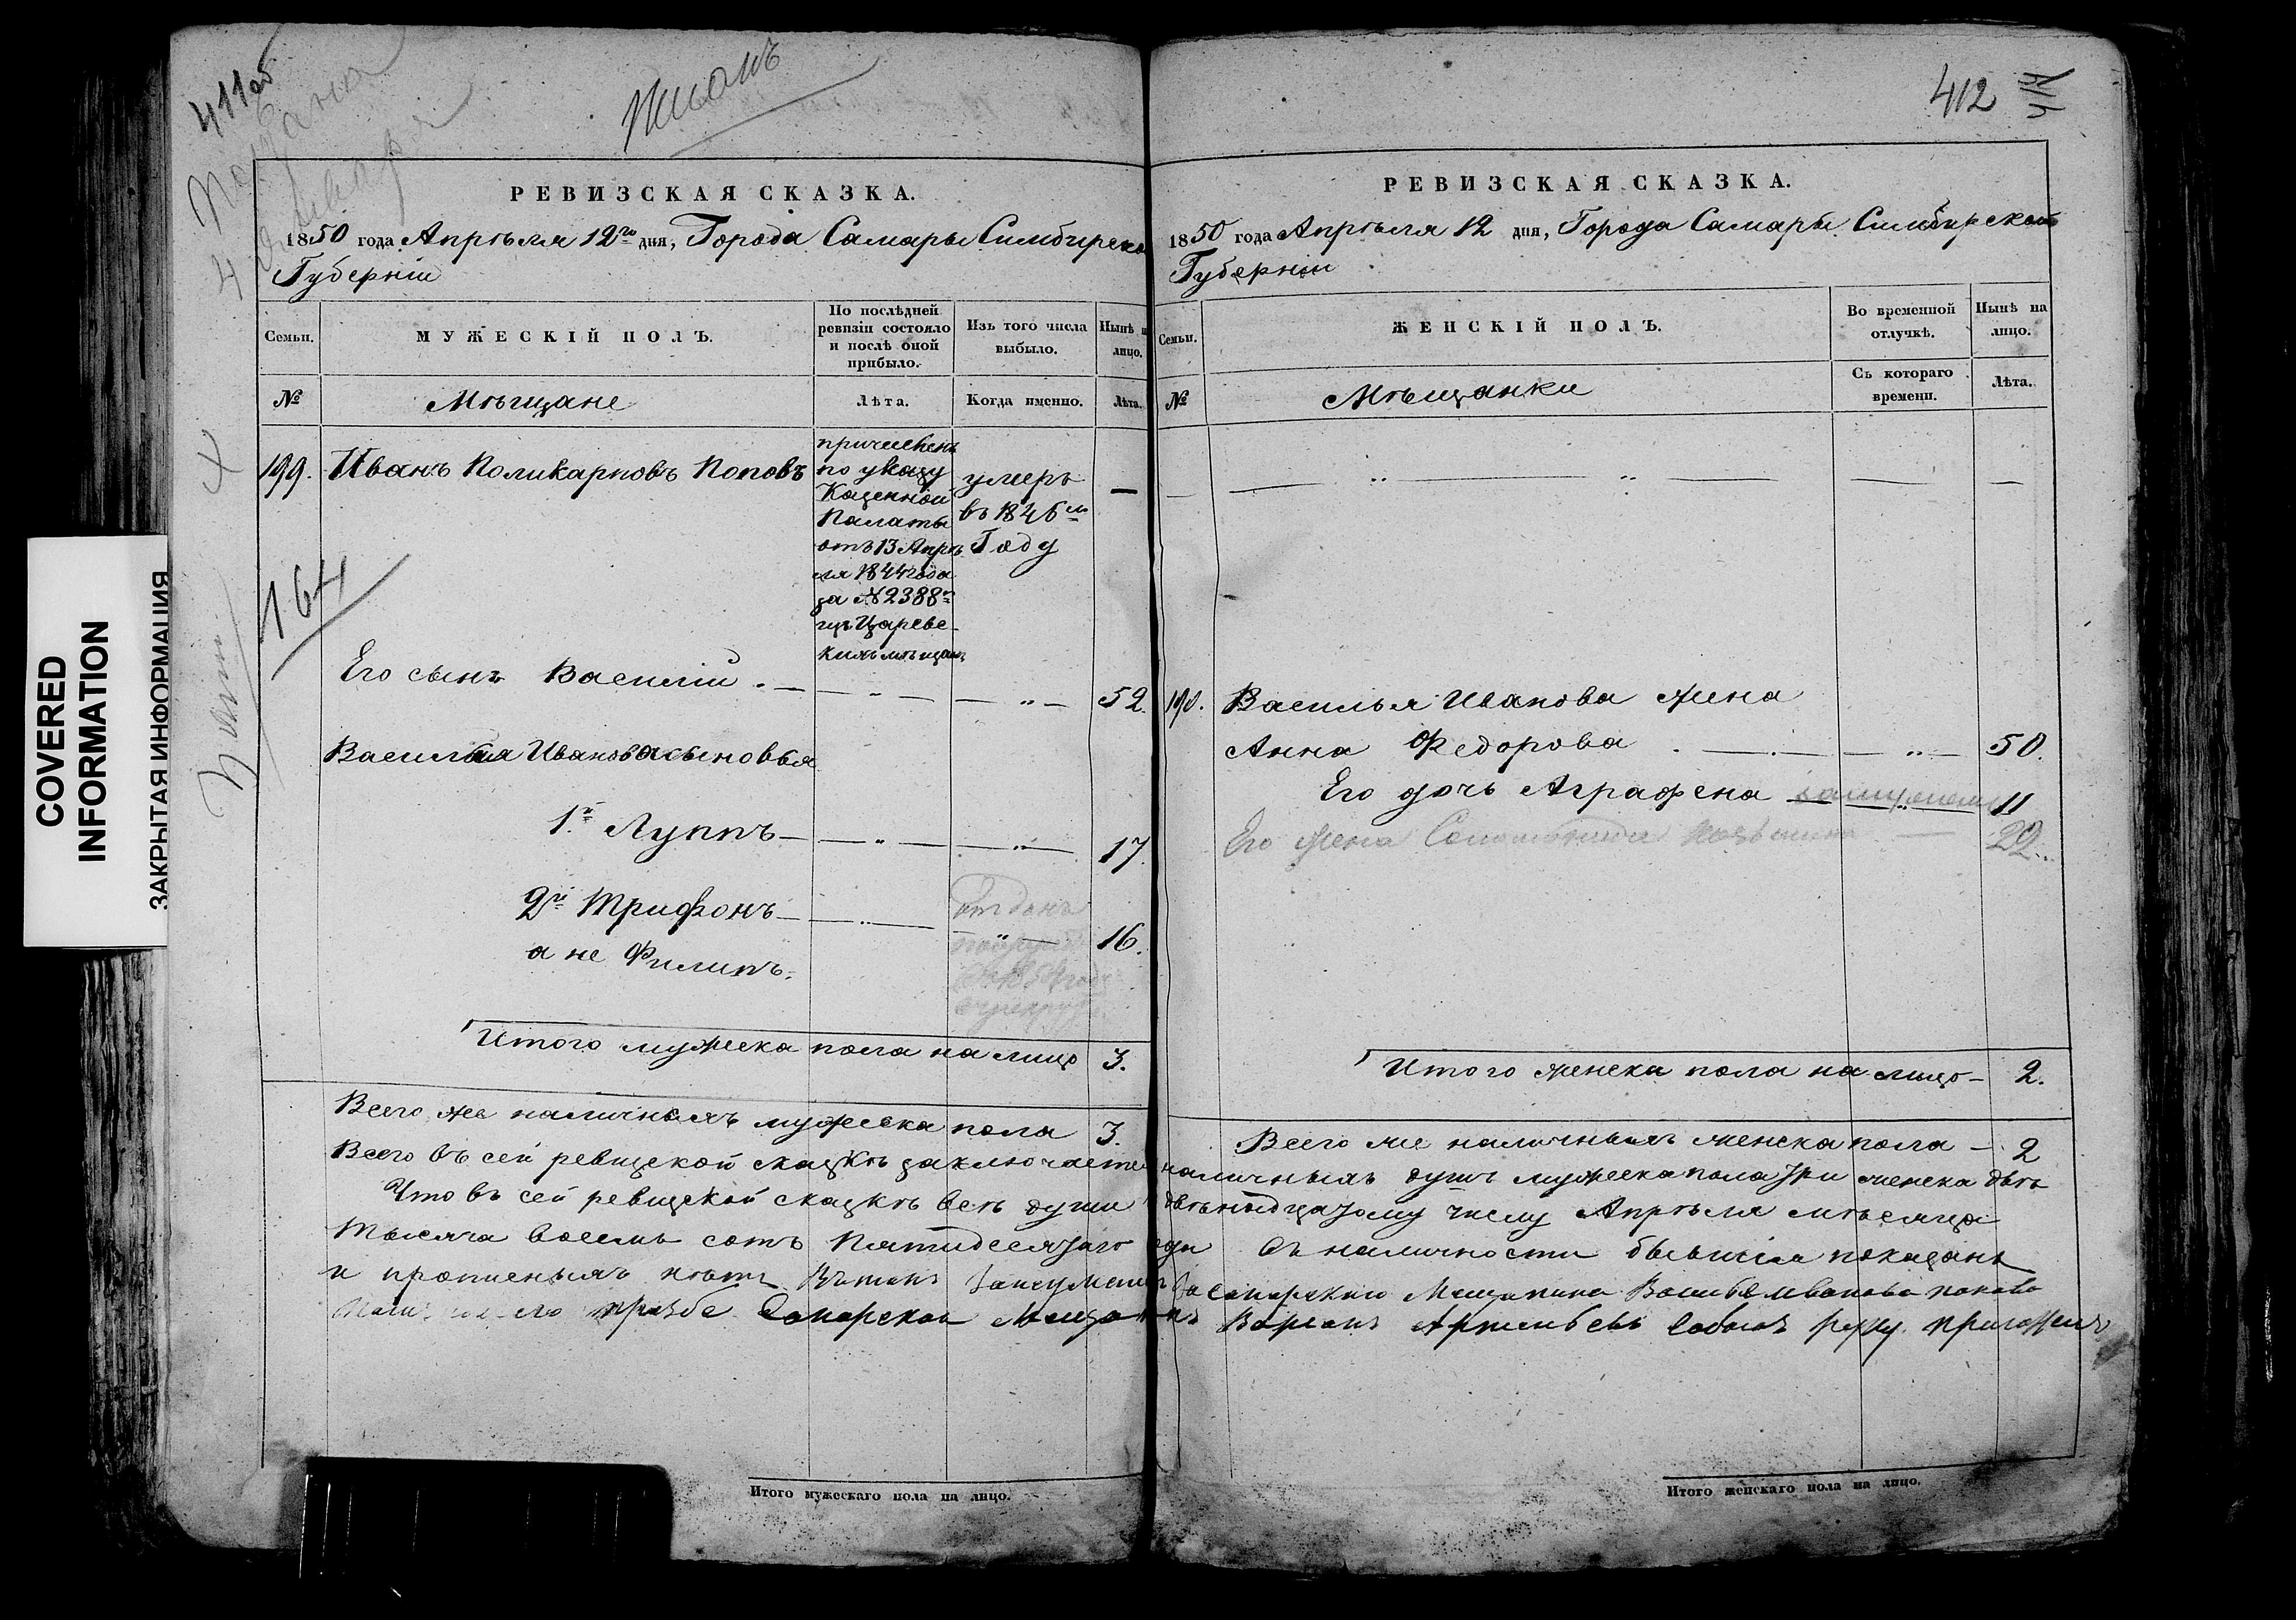 COVERED
INFORMATION
ЗАКРЫТАЯ ИНФОРМАЦИЯ
411об
4
164
РЕВИЗСКАЯ СКАЗКА.
1850 года Апрѣля 12го дня, Города Самары Симбирско
Губерніи
Семьи.
МУЖЕСКІЙ ПОЛЪ.
По послѣдней
ревизіи состояло
и послѣ оной
прибыло.
Изъ того числа
выбыло.
Нынѣ н
лицо.
№
Мѣщане
Лѣта.
Когда именно.
Лѣта.
199. Иванъ Поликарповъ Поповъ
причисленъ
по указу
Казенной
Палаты
отъ 13 Апрѣ
ля 1844 года
за № 2388м
изъ Царевс
кихъ мѣщанъ
умеръ
въ 1846м
Году
—
Его сынъ Василій. — 52.
Василья Иванова сыновья
1й Луппъ — 17.
2й Трифонъ — 16.
а не Филипъ.
отданъ
Итого мужеска пола на лицо 3.
Всего же наличныхъ мужеска пола 3.
Всего въ сей ревизской сказкѣ заключаетс
Что въ сей ревизской сказкѣ всѣ души
тысяча восемь сотъ пятидесятаго
и прописныхъ нѣтъ
прозбе Самарской Мещан
Итого мужескаго пола на лицо.
412
РЕВИЗСКАЯ СКАЗКА.
1850 года Апрѣля 12 дня, Города Самары Симбирской
Губерніи
Семьи.
ЖЕНСКІЙ ПОЛЪ.
Во временной
отлучкѣ.
Нынѣ на
лицо.
№
Мѣщанки
Съ котораго
времени.
Лѣта.
190. Василья Иванова жена
Анна Федорова — 50.
Его дочь Аграфена замужемъ 11
Его жена 22
Итого женска пола на лицо — 2.
Всего же наличныхъ женска пола — 2
наличныхъ душъ мужеска пола три женска двѣ
двѣнадцатому числу Апрѣля мѣсяца
года въ наличности бывшія показаны
Самарскаго Мещанина Василья Иванова Попова
Артемьевъ руку приложилъ
Итого женскаго пола на лицо.